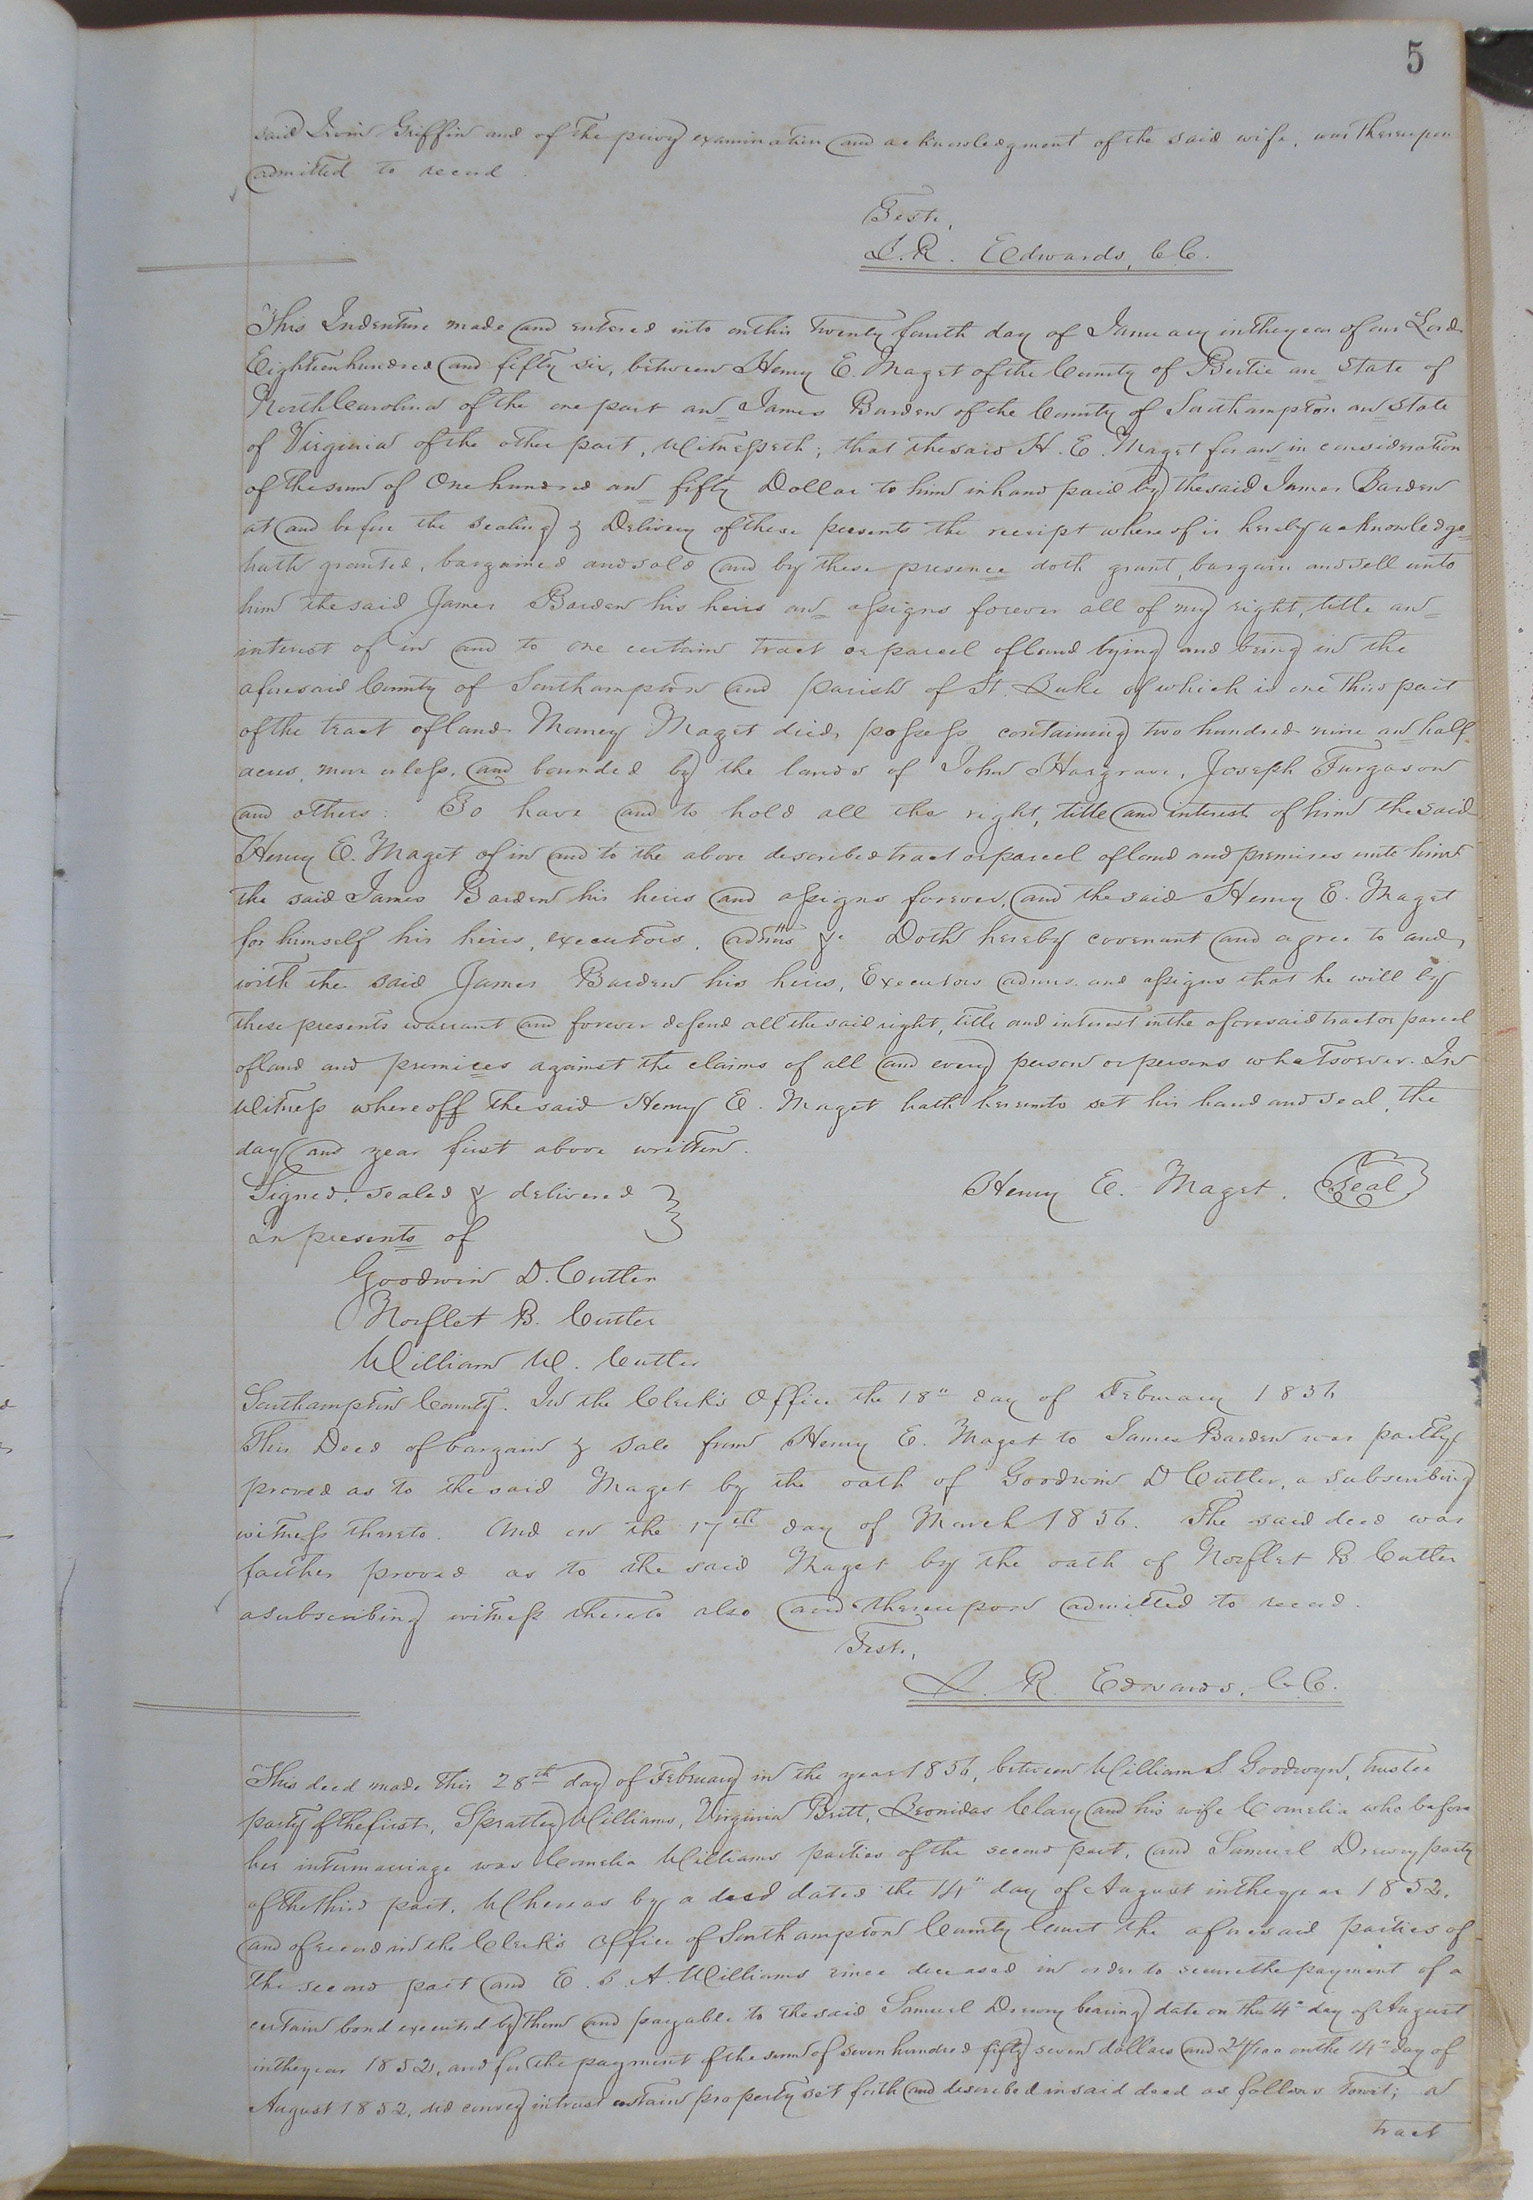 5
said Irvin Griffin and of the privy examination and acknowledgment of the said wife, was thereupon
admitted to record.
Teste,
L. R. Edwards, C C.
This Indenture made and entered into on this Twenty fourth day of January in the year of our Lord
Eighteen hundred and fifty six, between Henry E. Maget of the County of Bertie an State of
North Carolina of the one part an James Barden of the County of Southampton an State
of Virginia of the other part, Witnesseth; that the said H. E. Maget for an in consideration
of the sum of One hundred an fifty Dollar to him in hand paid by the said James Barden
at and before the sealing & Delivery of these presents the receipt where of is hereby acknowledge
hath granted, bargained and sold and by these presence doth grant, bargain and sell unto
him the said James Barden his heirs an assigns forever all of my right, title an
interest of in and to one certain tract or parcel of land lying and being in the
aforesaid County of Southampton and parish of St. Luke of which is one third part
of the tract of land Money Maget died, possess containing two hundred nine an half
acres, more or less, and bounded by the lands of John Hargrave, Joseph Furgason
and others: To have and to hold all the right, title and interest of him the said
Henry E. Maget of in and to the above described tract or parcel of land and premises unto him
the said James Barden his heirs and assigns forever, and the said Henry E. Maget
for himself his heirs, executors, admrs &c Doth hereby covenant and agree to and,
with the said James Barden his heirs, Executors admrs. and assigns that he will by
these presents warrant and forever defend all the said right, title and interest in the aforesaid tract or parcel
of land and premices against the claims of all and every person or persons whatsoever. In
Witness whereoff the said Henry E. Maget hath hereunto set his hand and seal, the
day and year first above written.
Signed, sealed & delivered
in presents of
Henry E. Maget. Seal
Goodwin D. Cutler
Norflet B. Cutler
William W. Cutler
Southampton County. In the Clerk's Office the 18" day of February 1856
This Deed of bargain & sale from Henry E. Maget to James Barden was partly
proved as to the said Maget by the oath of Goodwin D Cutler, a subscribing
witness thereto. And on the 17th day of March 1856. The said deed was
farther proved as to the said Maget by the oath of Norflet B Cutler
a subscribing witness thereto also and thereupon admitted to record.
Test.,
L. R. Edwards, C. C.
This deed made this 28th day of February in the year 1856, between William S. Goodwyn, trustee
party of the first, Spratley Williams, Virginia Britt, Leonidas Clary and his wife Cornelia who before
her intermarriage was Cornelia Williams parties of the second part, and Samuel Drewry party
of the third part, Whereas by a deed dated the 14" day of August in the year 1852,
and of record in the Clerk's Office of Southampton County Court the aforesaid parties of
the second part and E. B. A. Williams since deceased in order to secure the payment of a
certain bond executed by them and payable to the said Samuel Drewry bearing date on the 4" day of August
in the year 1852, and for the payment of the sum of seven hundred fifty seven dollars and 24/100 on the 14" day of
August 1852, did convey in trust certain property set forth and described in said deed as follows towit; a
tract